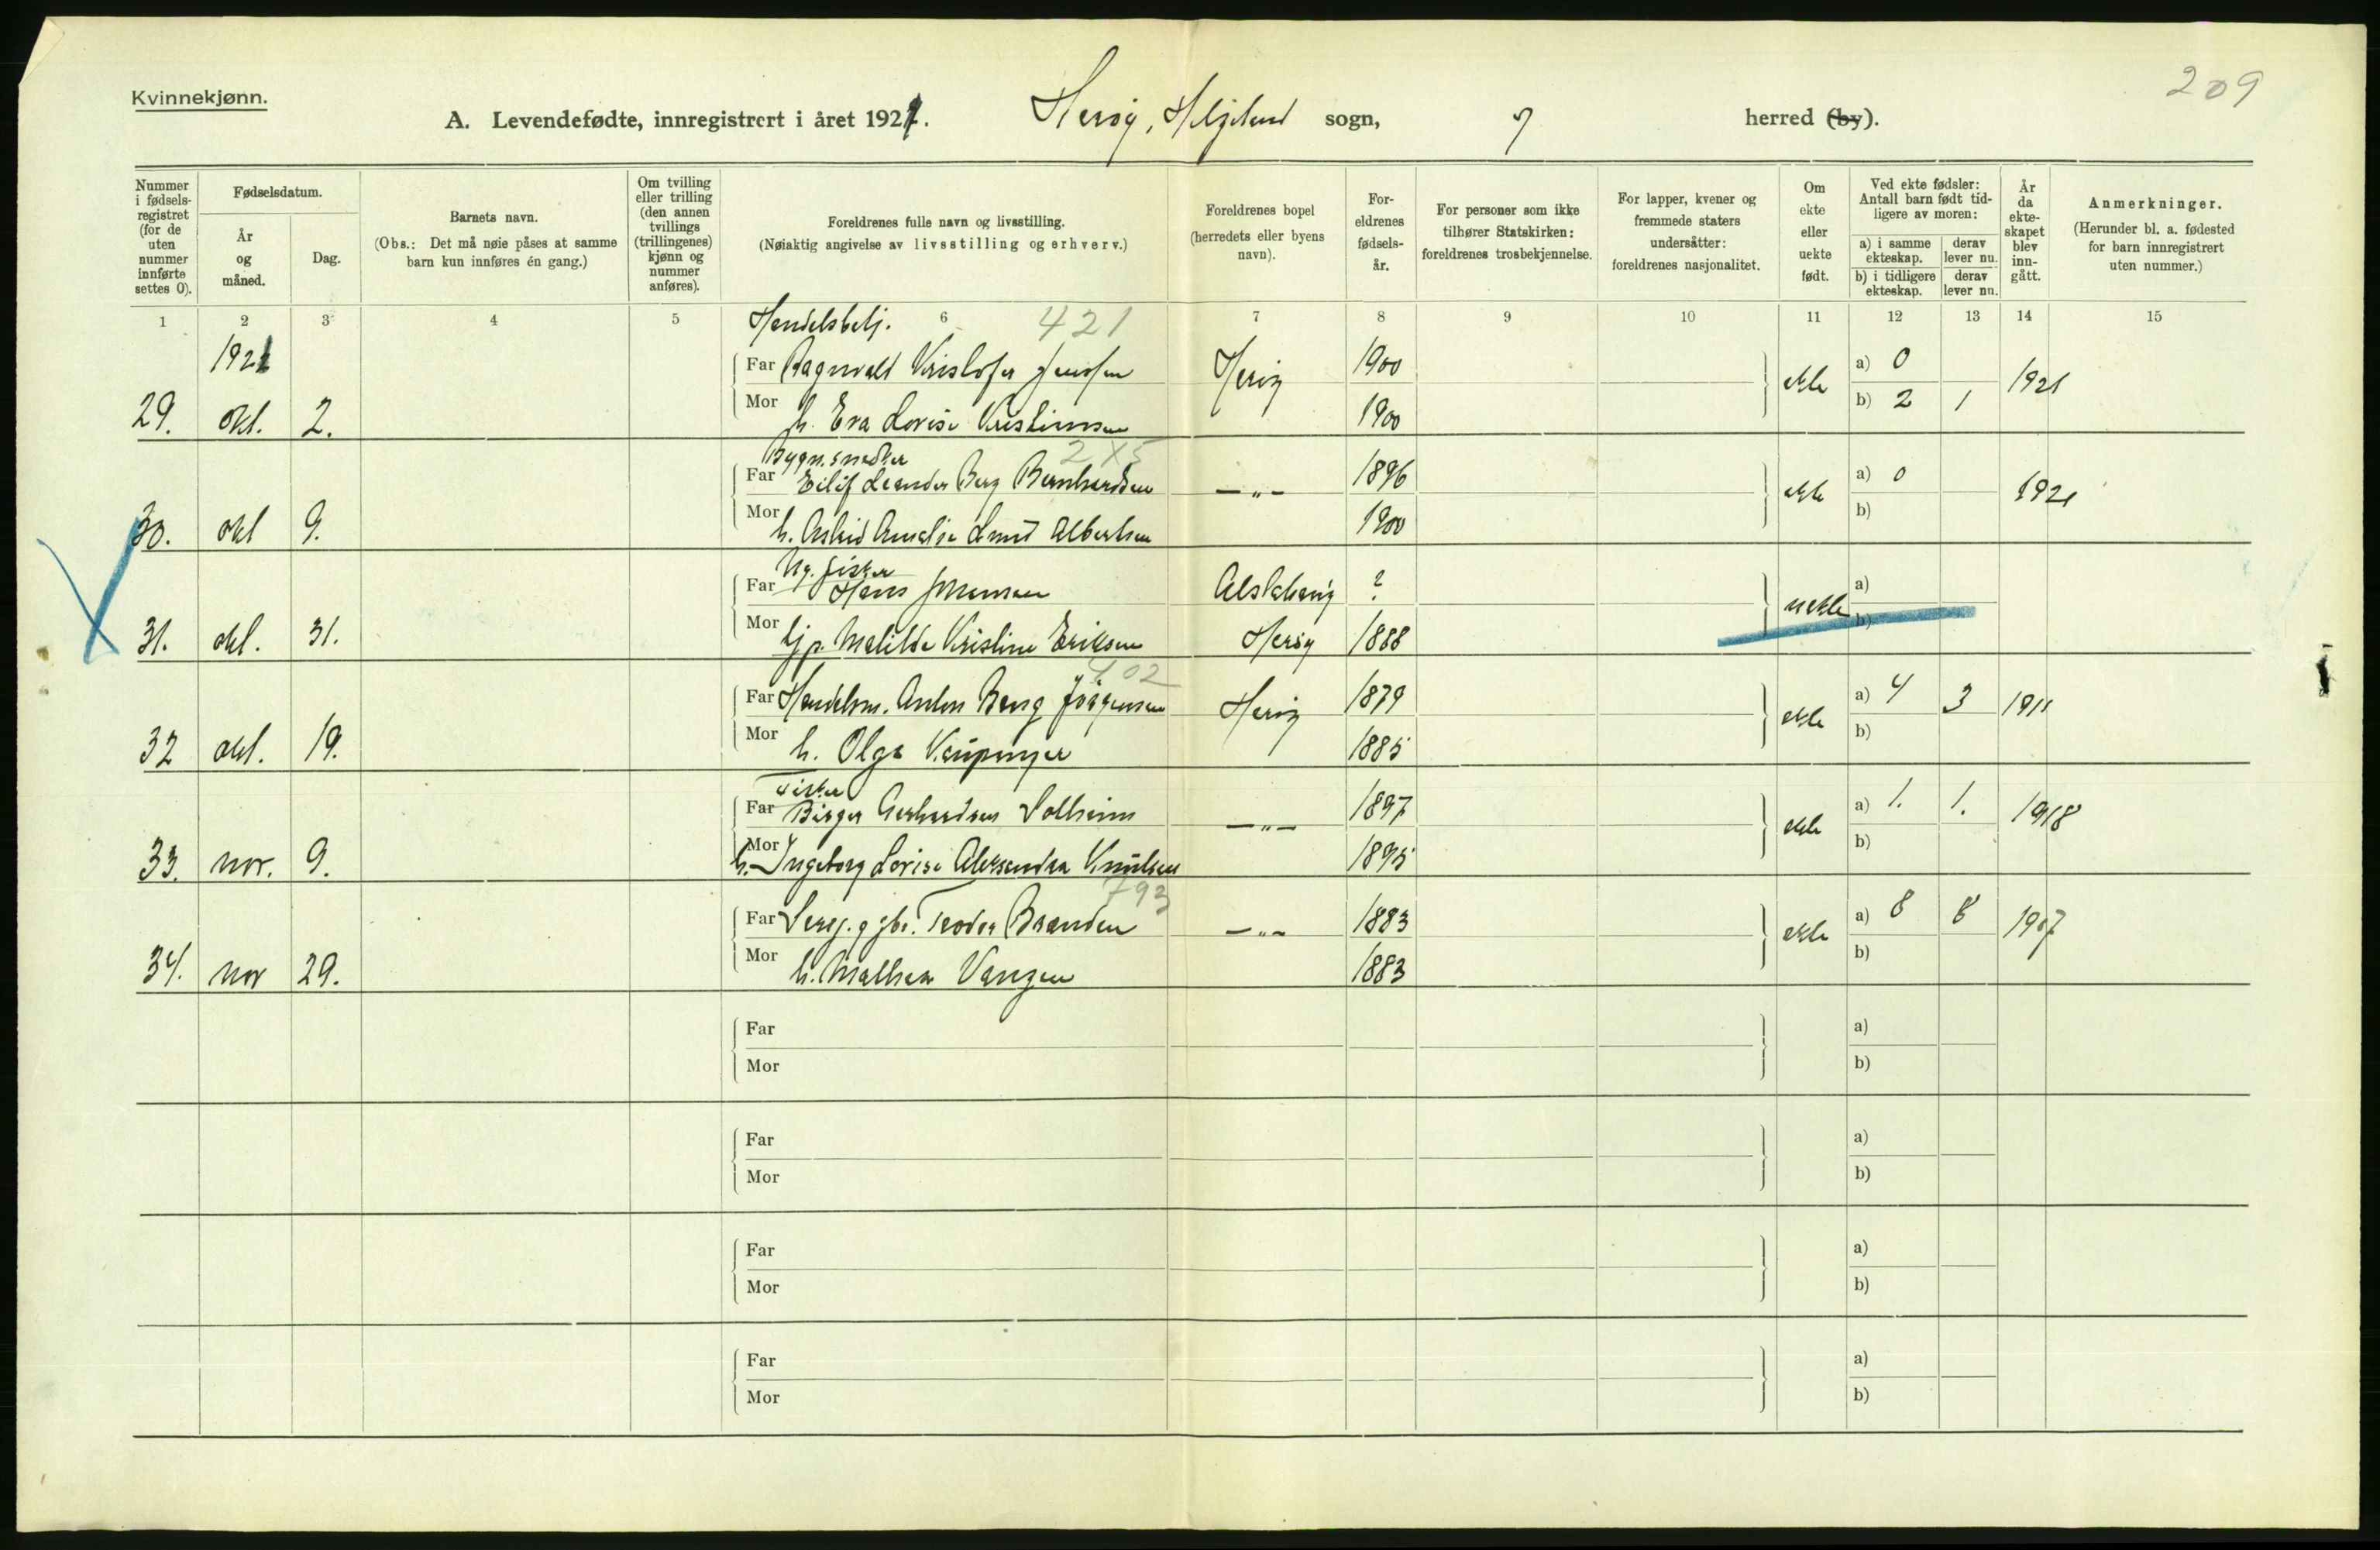 209
Kvinnekjønn.
A. Levendefødte, innregistrert i året 1921. Herøy, Helgeland sogn, herred (by).
Nummer i fødselsregistret (for de uten nummer innførte settes 0).
Fødselsdatum.
År og måned.
Dag.
Barnets navn.
(Obs.: Det må nøie påses at samme barn kun innføres én gang.)
Om tvilling eller trilling (den annen tvillings (trillingenes) kjønn og nummer anføres).
Foreldrenes fulle navn og livsstilling.
(Nøiaktig angivelse av livsstilling og erhverv.)
Foreldrenes bopel (herredets eller byens navn).
For-eldrenes fødsels-år.
For personer som ikke tilhører Statskirken: foreldrenes trosbekjennelse.
For lapper, kvener og fremmede staters undersåtter: foreldrenes nasjonalitet.
Om ekte eller uekte født.
Ved ekte fødsler: Antall barn født tidligere av moren:
a) i samme ekteskap. derav lever nu.
b) i tidligere ekteskap. derav lever nu.
År da ekte-skapet blev inn-gått.
Anmerkninger.
(Herunder bl. a. fødested for barn innregistrert uten nummer.)
1 2 3 4 5 6 7 8 9 10 11 12 13 14 15
Handelsbetj. 421
1921
Far Ragnvald Kristofer Jensen Herøy 1900 ekte a) 0 1921
29. Okt. 2. Mor h. Eva Lovise Kristiansen 1900 b) 2 1
Bygn.snedker 2X5
Far Eilif Leander Berg Bernhardsen —„— 1896 ekte a) 0 1921
30. okt 9. Mor h. Astrid Amalie Lund Albertsen 1900 b)
Ug. fisker
Far Hans Johansen Alstahaug ? uekte a)
31. okt. 31. Mor Tj p. Matilde Kristine Eriksen Herøy 1888 b)
402
Far Handelsm. Anton Berg Jörgensen Herøy 1879 ekte a) 4 3 1911
32 okt. 19. Mor h. Olga Kaupanger 1885 b)
Fisker
Far Birger Gerhardsen Solheim —„— 1897 ekte a) 1. 1. 1918
33. nov. 9. Mor h. Ingeborg Lovise Aleksandra Knutsen 1895 b)
793
Far Sersj. g gbr. Teodor Branden —„— 1883 ekte a) 8 8 1907
34. nov 29. Mor h. Mathea Vangen 1883 b)
Far a)
Mor b)
Far a)
Mor b)
Far a)
Mor b)
Far a)
Mor b)